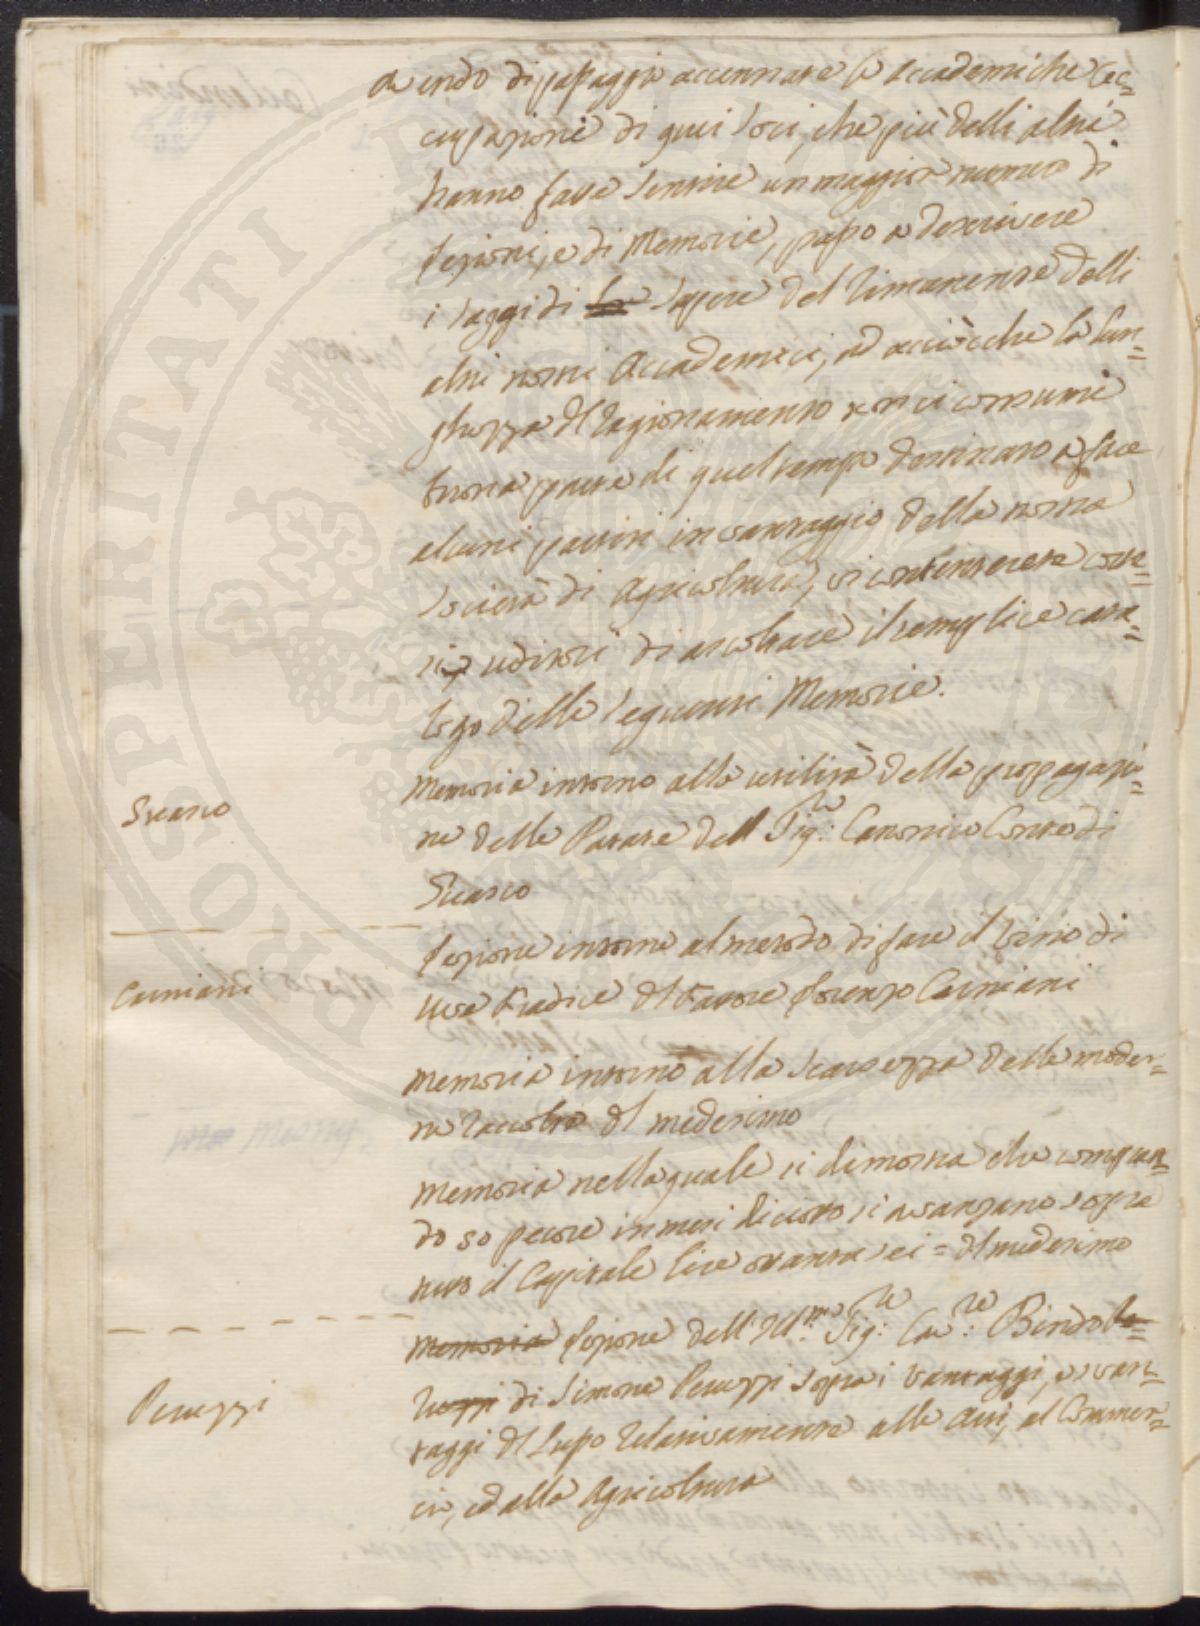 avendo di passaggio accennate le accademiche oc=
cupazioni di quei Soci, che più delli altri
hanno fatte sentire un maggior numero di
Lezioni, e di Memorie, passo a descrivere
i saggi di sapere del rimanente delli
altri nostri Accademici, ed acciocche la lun=
ghezza del ragionamento non ci consumi
buona parte di quel tempo destinato a fare
alcuni partiti in vantaggio della nostra
Società di Agricoltura, vi contenterete corte=
si uditori di ascoltare il semplice cata=
logo delle seguenti Memorie.
Memoria intorno alla utilità della propagazio=
ne delle Patate dell Sig:re Canonico Conte di
Sticasco
Lezione intorno al metodo di fare il vino di
Uve fradice del Fattore Lorenzo Carniani
Carniani
Memoria intorno alla scarsezza delle moder=
ne raccolte del medesimo
Memoria nella quale si dimostra che compran=
do 50 pecore in mesi diciotto si avanzano sopra
tutto il Capitale lire ottanta sei = del medesimo
Memoria Lezione dell'Ill:mo Sig:re Cav:re Bindo
di Simone Peruzzi sopra i vantaggi, e svan=
taggi del Lusso relativamente alle Arti, al Commer=
cio, ed alla Agricoltura
Peruzzi
PROSPERITATI